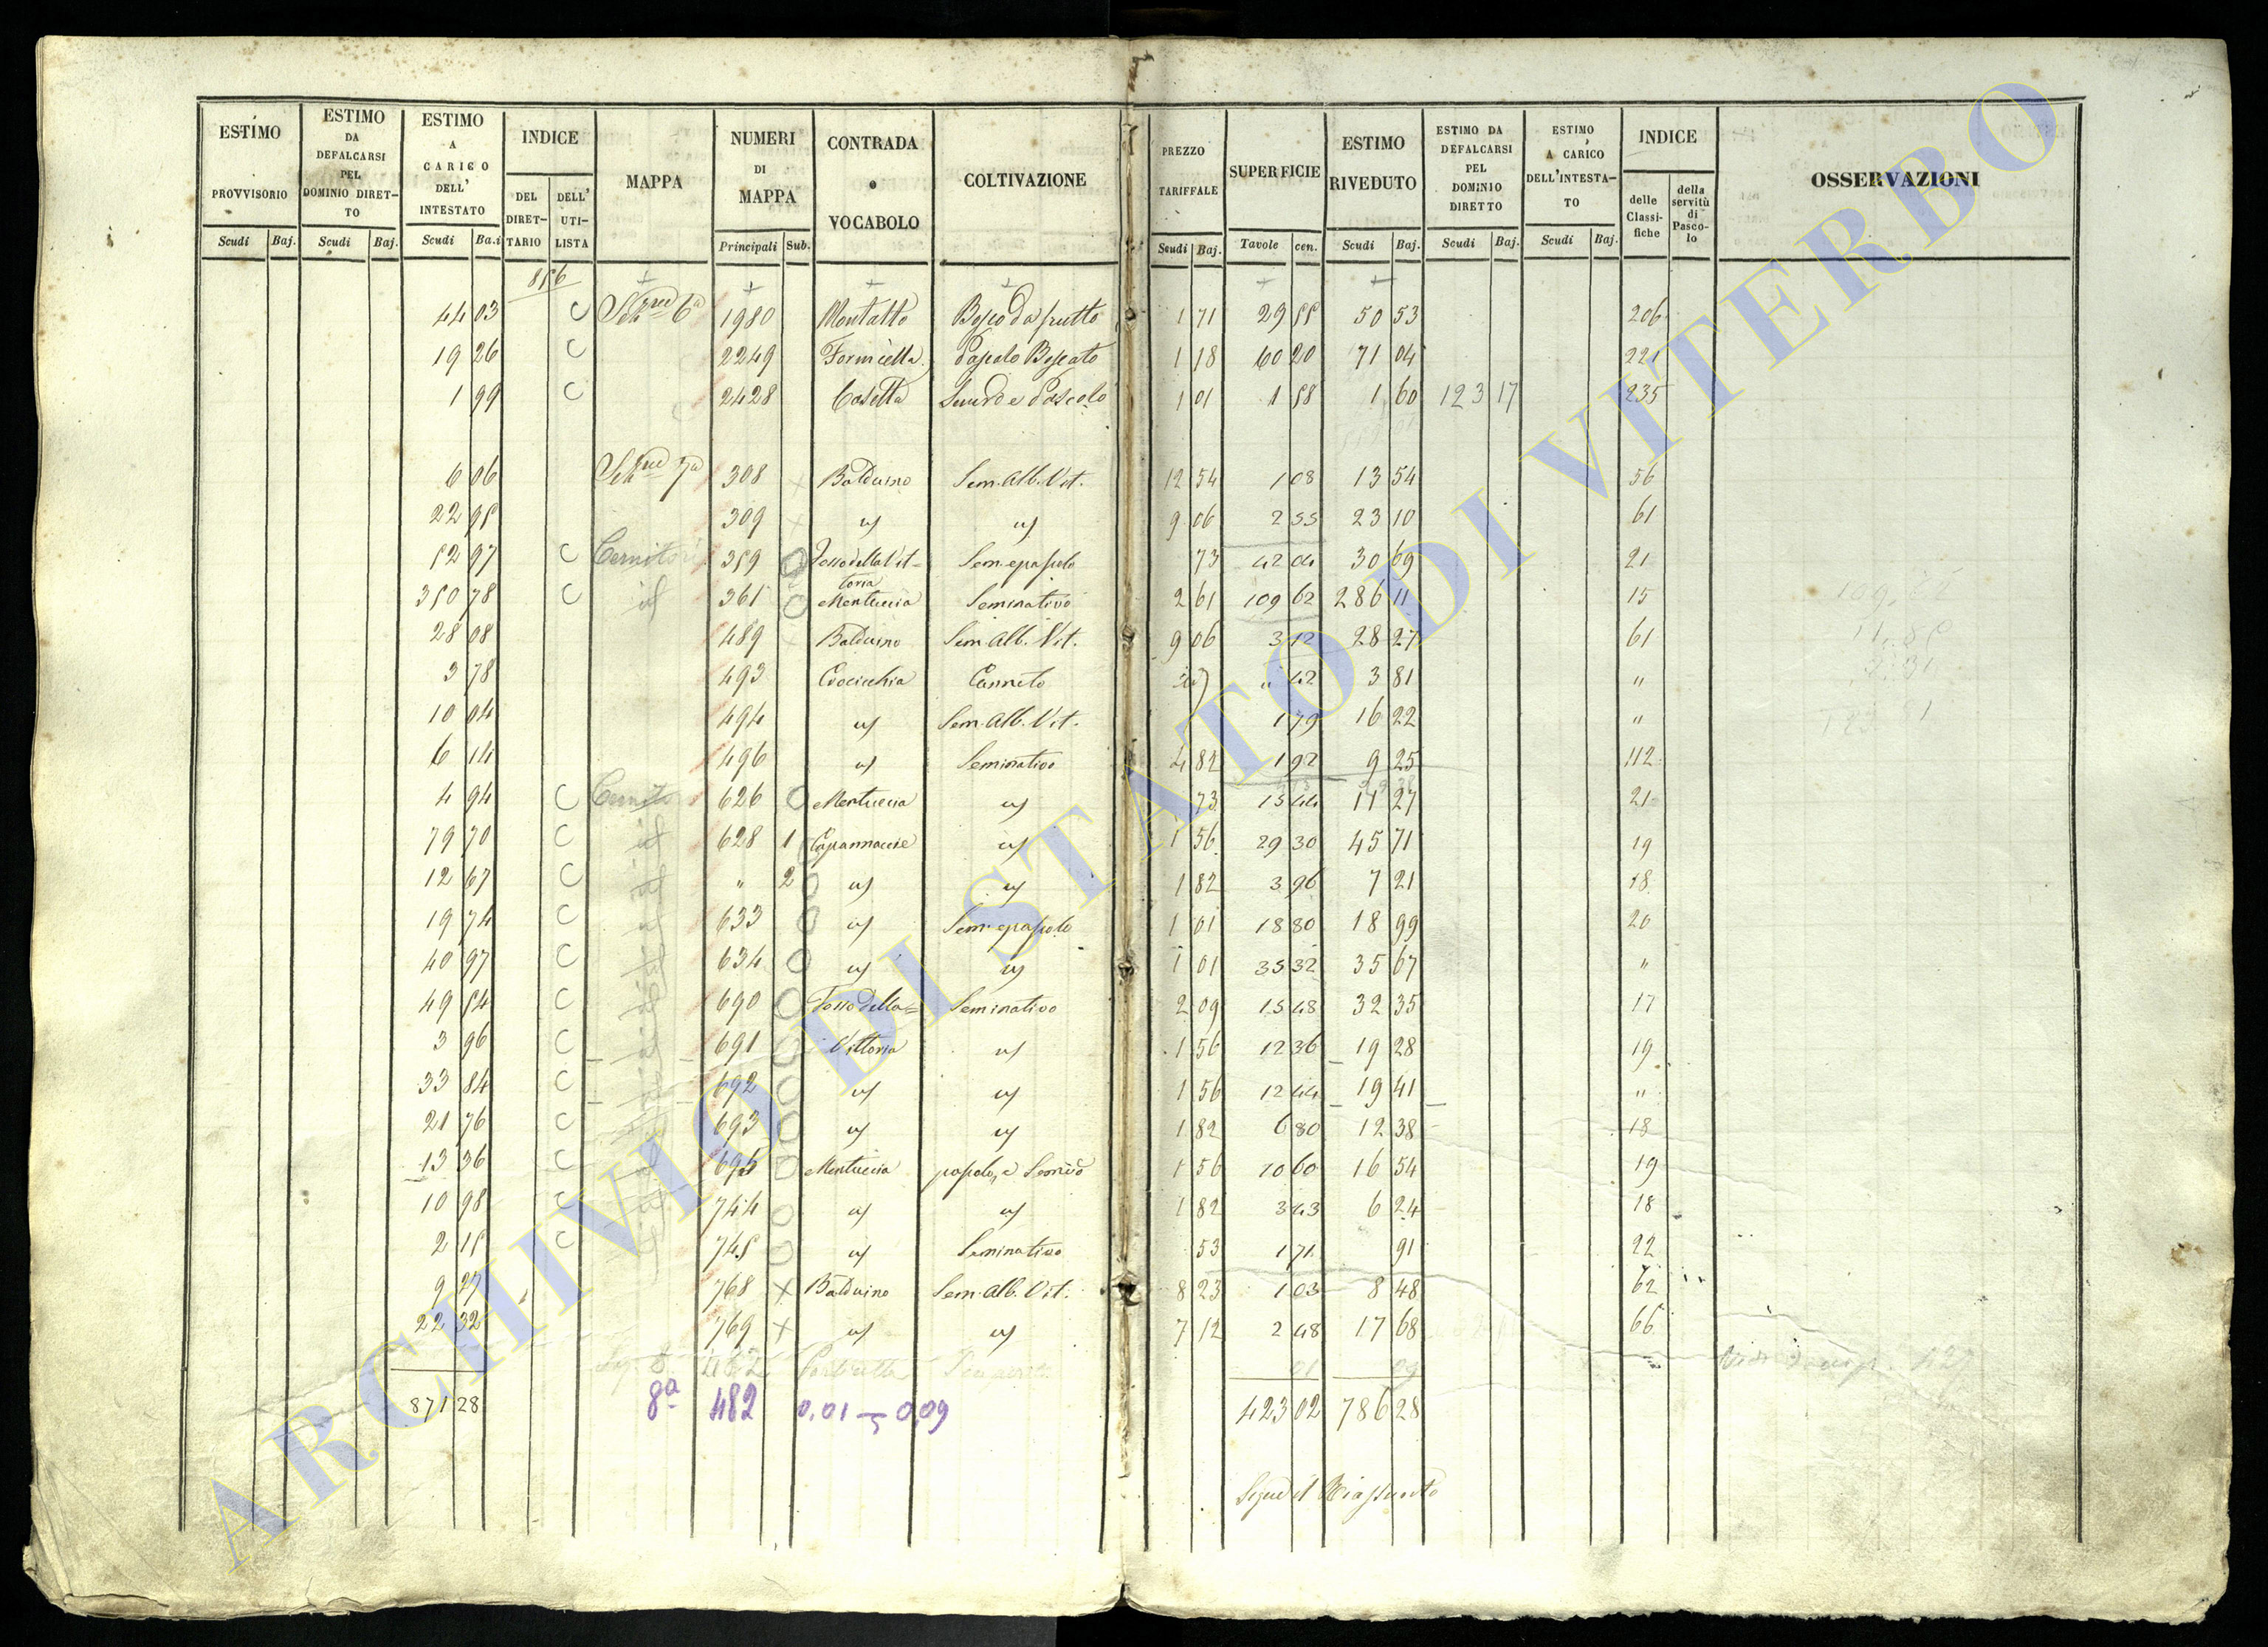 ESTIMO PROVVISORIO Scudi Baj.
ESTIMO DA DEFALCARSI PEL DOMINIO DIRETTO Scudi Baj.
ESTIMO A CARICO DELL' INTESTATO Scudi Baj.
INDICE DEL DIRETTARIO DELL' UTILISTA
MAPPA
NUMERI DI MAPPA Principali Sub.
CONTRADA o VOCABOLO
COLTIVAZIONE
PREZZO TARIFFALE Scudi Baj.
SUPERFICIE Tavole cen.
ESTIMO RIVEDUTO Scudi Baj.
ESTIMO DA DEFALCARSI PEL DOMINIO DIRETTO Scudi Baj.
ESTIMO A CARICO DELL'INTESTATO Scudi Baj.
INDICE delle Classifiche della servitù di Pascolo
OSSERVAZIONI
856
44 03 C 6a 1980 Montalto Bosco da frutto 1 71 29 55 50 53 206
19 26 C 2249 Formicella Pascolo Boscato 1 18 60 20 71 04 221
1 99 C 2428 Casetta Pascolo 1 01 1 58 1 60 123 17 235
6 06 7a 308 Balduino Sem. Alb. Vit. 12 54 1 08 13 54 56
22 95 309 id id 9 06 2 55 23 10 61
52 97 C 359 Fosso della Vittoria Sem. e pascolo 73 42 04 30 69 21
350 78 C id 361 Mentuccia Seminativo 2 61 109 62 286 11 15
28 08 489 Balduino Sem. Alb. Vit. 9 06 3 12 28 27 61
3 78 493 Crocicchia Canneto " 42 3 81 "
10 04 494 id Sem. Alb. Vit. 1 79 16 22 "
6 14 496 id Seminativo 4 82 1 92 9 25 112
4 94 C 626 Mentuccia id 73 15 44 11 27 21
79 70 C id 628 1 Capannaccie id 1 56 29 30 45 71 19
12 67 C id " 2 id id 1 82 3 96 7 21 18
19 74 C id 633 id Sem. e pascolo 1 01 18 80 18 99 20
40 97 C id 634 id id 1 01 35 32 35 67 "
49 54 C id 690 Fosso della= Seminativo 2 09 15 48 32 35 17
3 96 C id 691 Vittoria id 1 56 12 36 19 28 19
33 84 C id 692 id id 1 56 12 44 19 41 "
21 76 C id 693 id id 1 82 6 80 12 38 18
13 36 C id 695 Mentuccia pascolo, e Semivo 1 56 10 60 16 54 19
10 98 C id 744 id id 1 82 3 43 6 24 18
2 15 C id 745 id Seminativo 53 1 71 91 22
9 27 768 × Balduino Sem. Alb. Vit. 8 23 1 03 8 48 62
22 32 769 × id id 7 12 2 48 17 68 66
482 01 09
871 28 8a 482 0,01 – 0,09 423 02 786 28
Segue il Riassunto
ARCHIVIO DI STATO DI VITERBO